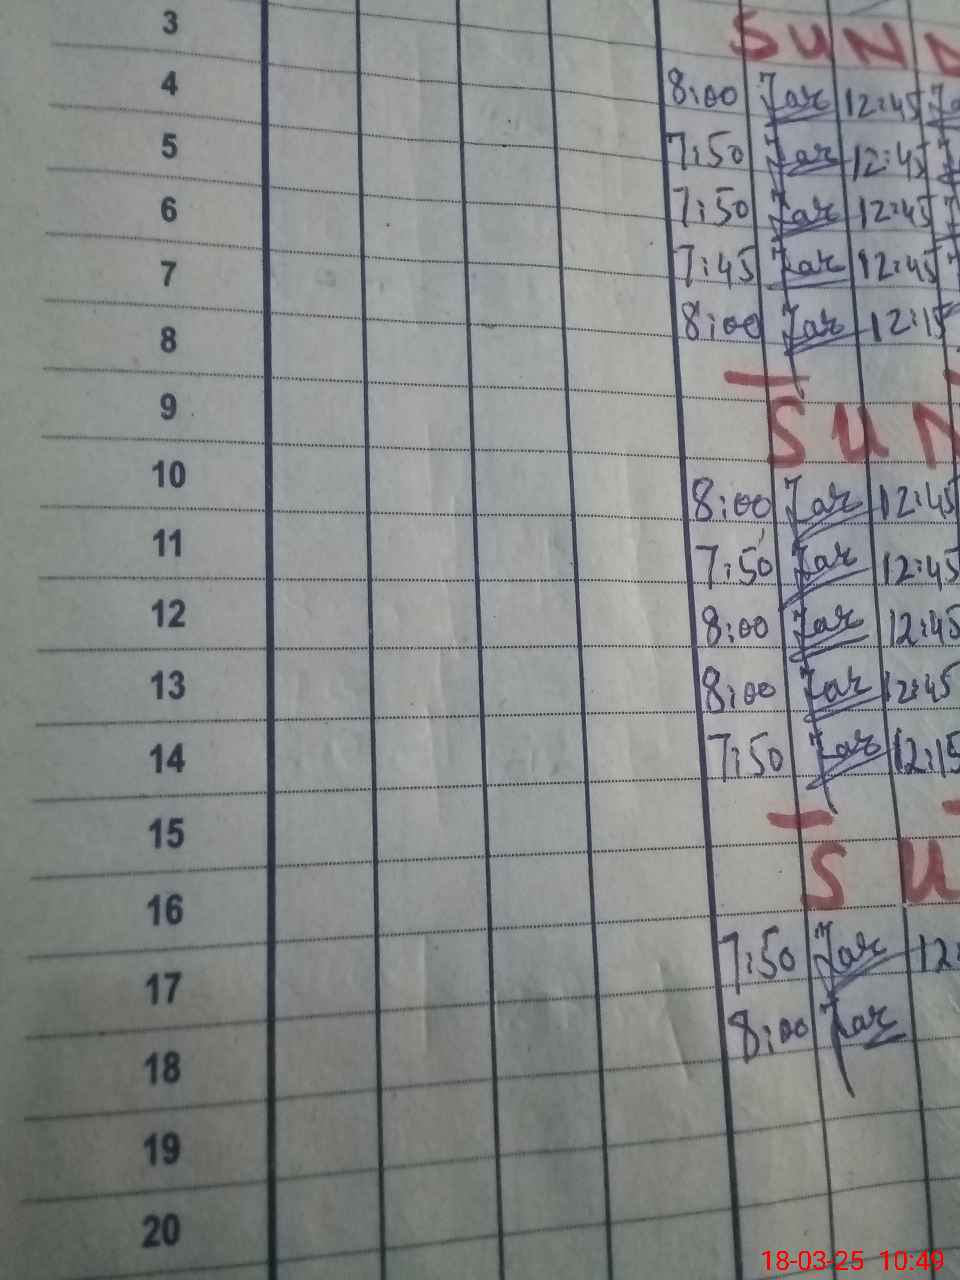 3
S U N D
4 8:00 Zar 12:45
5 7:50 Zar 12:45
6 7:50 Zar 12:45
7 7:45 Zar 12:45
8 8:00 Zar 12:15
9 S U N
10 8:00 Zar 12:45
11 7:50 Zar 12:45
12 8:00 Zar 12:45
13 8:00 Zar 12:45
14 7:50 Zar 12:15
15
16 S U
17 7:50 Zar 12:
18 8:00 Zar
19
20
18-03-25 10:49